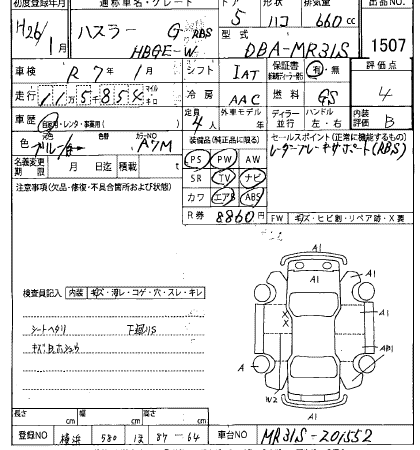 初度登録年月 通称車名・グレード ドア 形状 排気量 出品NO
H26/1月 ハスラー G RBS 5 ハコ 660cc
HBGE-W 型式 DBA-MR31S 1507
車検 R7年1月 シフト IAT 保証書 有・無 評価点
走行 11万5854 マイル キロ 冷房 AAC 燃料 GS 4
車歴 自家用・レンタ・事業用( ) 定員 4人 外車モデル 年 ディーラー 並行 ハンドル 左・右 内装評価 B
色 元色 ブルー/白 色替 カラーNO A7M 装備品(純正品に限る) セールスポイント(正常に機能するもの)
名義変更期限 月 日迄 積載 PS PW AW レーダーブレーキサポート(RBS)
注意事項(欠品・修復・不具合箇所および状態) SR TV ナビ
カワ エアB ABS
R券 8860円 FW キズ・ヒビ割・リペア跡・X要
A1
A1 A1
検査員記入 内装 キズ・汚レ・コゲ・穴・スレ・キレ
シートヘタリ 下廻りS X
X
AB1
A A1
W2
A1
長さ cm 幅 cm 高さ cm
登録NO 横浜 580 ほ 87-64 車台NO MR31S-201552